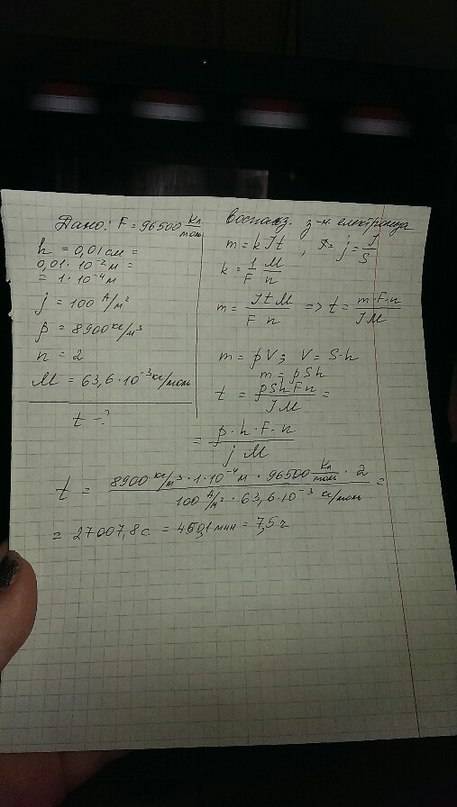 Дано: F = 96500 Кл/моль
h = 0,01 см =
0,01 · 10⁻² м =
= 1 · 10⁻⁴ м
j = 100 А/м²
ρ = 8900 кг/м³
n = 2
M = 63,6 · 10⁻³ кг/моль
t - ?
з-н.
m = k I t , j = I/S
k = 1/F M/n
m = I t M / F n => t = m · F · n / I M
m = ρV; V = S · h
m = ρSh
t = ρ S h F n / I M =
= ρ · h · F · n / j M
t = 8900 кг/м³ · 1 · 10⁻⁴ м · 96500 Кл/моль · 2 / 100 А/м² · 63,6 · 10⁻³ кг/моль =
= 27007,8 с = 450,1 мин = 7,5 ч